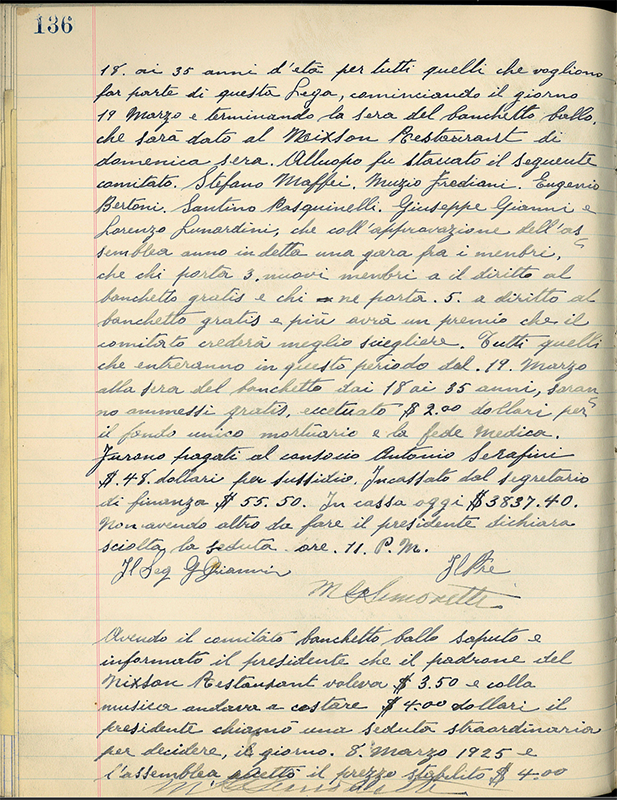 136
18. ai 35 anni d'età per tutti quelli che vogliono
far parte di questa Lega, cominciando il giorno
19 Marzo e terminando la sera del banchetto ballo.
che sarà dato al Nixson Restourart di
domenica sera. Alluopo fu staccato il seguente
comitato. Stefano Maffei. Muzio Frediani. Eugenio
Bertoni. Santino Pasquinelli. Giuseppe Gianni e
Lorenzo Lunardini, che coll'approvazione dell'as
semblea anno in detta una gara fra i menbri,
che chi porta 3. nuovi menbri a il diritto al
banchetto gratis e chi ne porta. 5. a diritto al
banchetto gratis e più avrà un premio che il
comitato crederà meglio sciegliere. Tutti quelli
che entreranno in questo periodo dal. 19. Marzo
alla sera del banchetto dai 18 ai 35 anni, saran
no ammessi gratis, eccetuato $ 2.00 dollari per
il fondo unico mortuario e la fede Medica.
Furono pagati al consocio Antonio Serafini
$. 48. dollari per sussidio. Incassato dal segretario
di finanza $ 55.50. In cassa oggi $3837.40.
Non avendo altro da fare il presidente dichiara
sciolta la seduta ore. 11. P.M.
Il Seg G Gianni Il Pre
M G Simonetti
Avendo il comitato banchetto ballo saputo e
informato il presidente che il padrone del
Nixson Restaurant voleva $ 3.50 e colla
musica andava a costare $ 4.00 dollari il
presidente chiamò una seduta straordinaria
per decidere, il giorno. 8. Marzo 1925 e
l'assemblea il prezzo stabilito $ 4.00
M G Simonetti